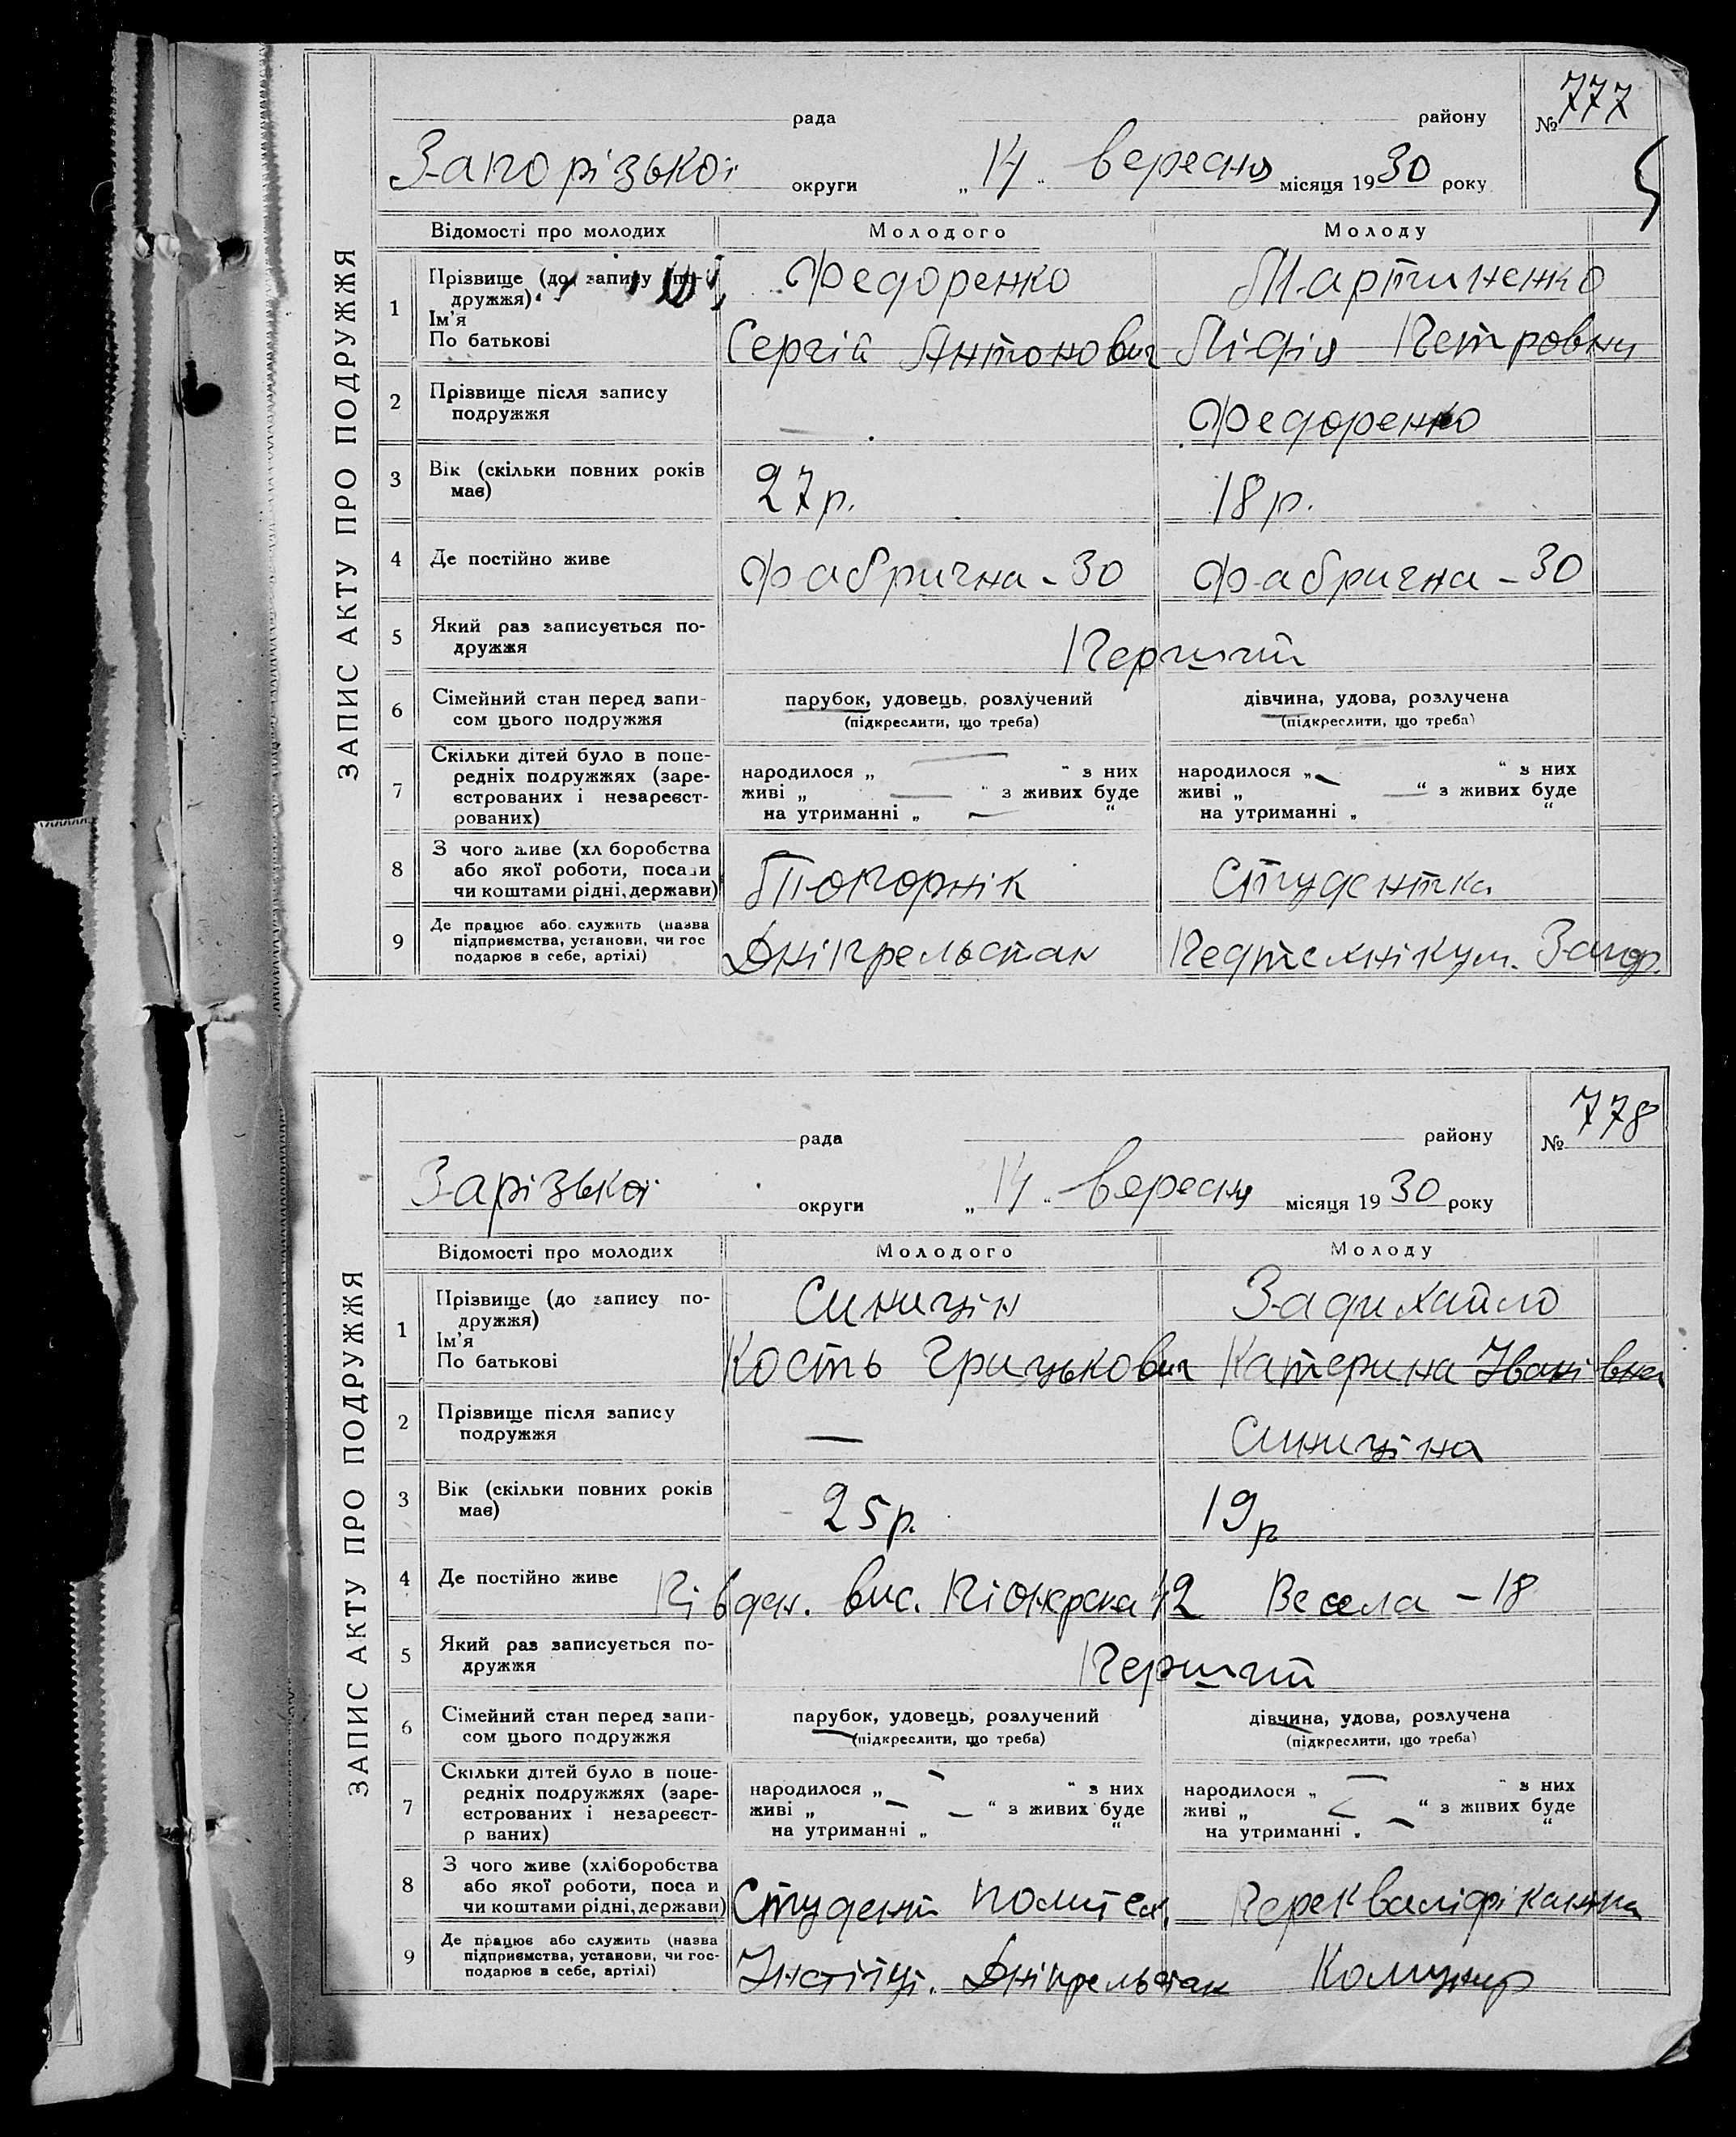 ЗАПИС АКТУ ПРО ПОДРУЖЖЯ
рада району № 777
Запорізької округи „ 14 “ вересня місяця 1930 року
Відомості про молодих Молодого Молоду
1 Прізвище (до запису по-
дружжя) Федоренко Мартиненко
Ім’я
По батькові Сергій Антонович Лідія Петровни
2 Прізвище після запису
подружжя — Федоренко
3 Вік (скільки повних років
має) 27 р. 18 р.
4 Де постійно живе Фабрична - 30 Фабрична - 30
5 Який раз записується по-
дружжя Перший
6 Сімейний стан перед запи-
сом цього подружжя парубок, удовець, розлучений дівчина, удова, розлучена
(підкреслити, що треба) (підкреслити, що треба)
7 Скільки дітей було в попе-
редніх подружжях (заре-
єстрованих і незареєст-
рованих) народилося „ — “ з них народилося „ — “ з них
живі „ — “ з живих буде живі „ — “ з живих буде
на утриманні „ — “ на утриманні „ “
8 З чого живе (хл боробства
або якої роботи, посади
чи коштами рідні, держави) Топорнік Студентка
9 Де працює або служить (назва
підприємства, установи, чи гос
подарює в себе, артілі) Дніпрельстан Педтехнікум. Запор.
ЗАПИС АКТУ ПРО ПОДРУЖЖЯ
рада району № 778
Зарізької округи „ 14 “ вересня місяця 1930 року
Відомості про молодих Молодого Молоду
1 Прізвище (до запису по-
дружжя) Синицін Задихайло
Ім’я
По батькові Кость Грицькович Катерина Іванівна
2 Прізвище після запису
подружжя — Синиціна
3 Вік (скільки повних років
має) 25 р. 19 р
4 Де постійно живе Півден. вис. Піонерска 12 Весела - 18
5 Який раз записується по-
дружжя Перший
6 Сімейний стан перед запи-
сом цього подружжя парубок, удовець, розлучений дівчина, удова, розлучена
(підкреслити, що треба) (підкреслити, що треба)
7 Скільки дітей було в попе-
редніх подружжях (заре-
єстрованих і незареєст-
р ваних) народилося „ — “ з них народилося „ — “ з них
живі „ — — “ з живих буде живі „ — “ з живих буде
на утриманні „ “ на утриманні „ — “
8 З чого живе (хліборобства
або якої роботи, поса и
чи коштами рідні, держави) Студент политех. Перекваліфікантка
9 Де працює або служить (назва
підприємства, установи, чи гос-
подарює в себе, артілі) Дніпрельстан Комунар